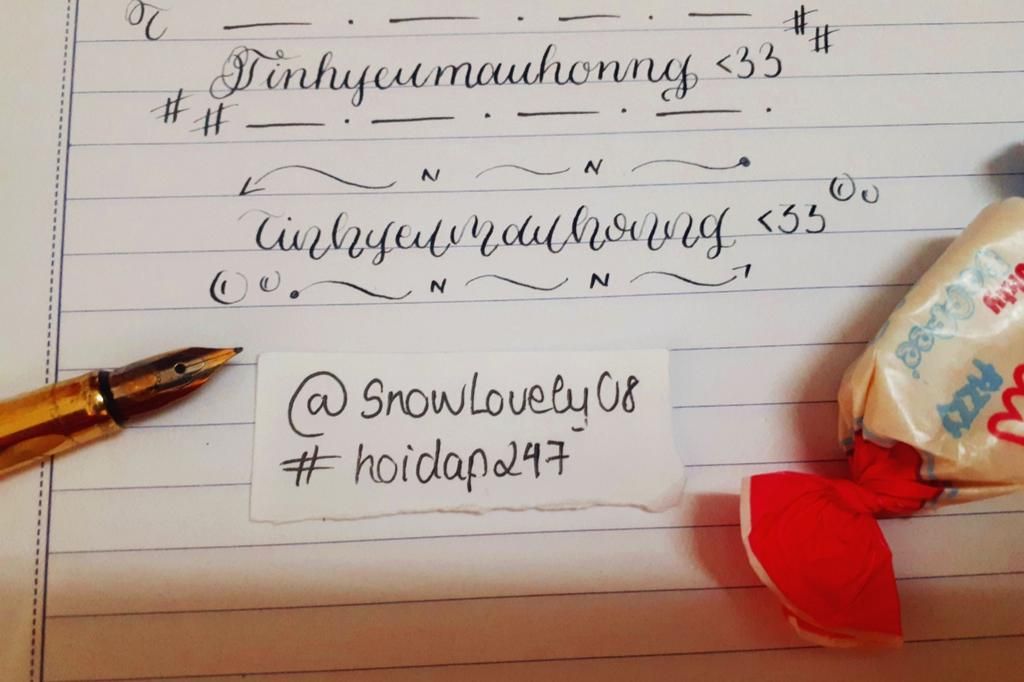 Tinhyeumauhonng <33
##
##
N N
Tinhyeumauhonng <33
N N
@SnowLovely08
#hoidap247
Fizzy